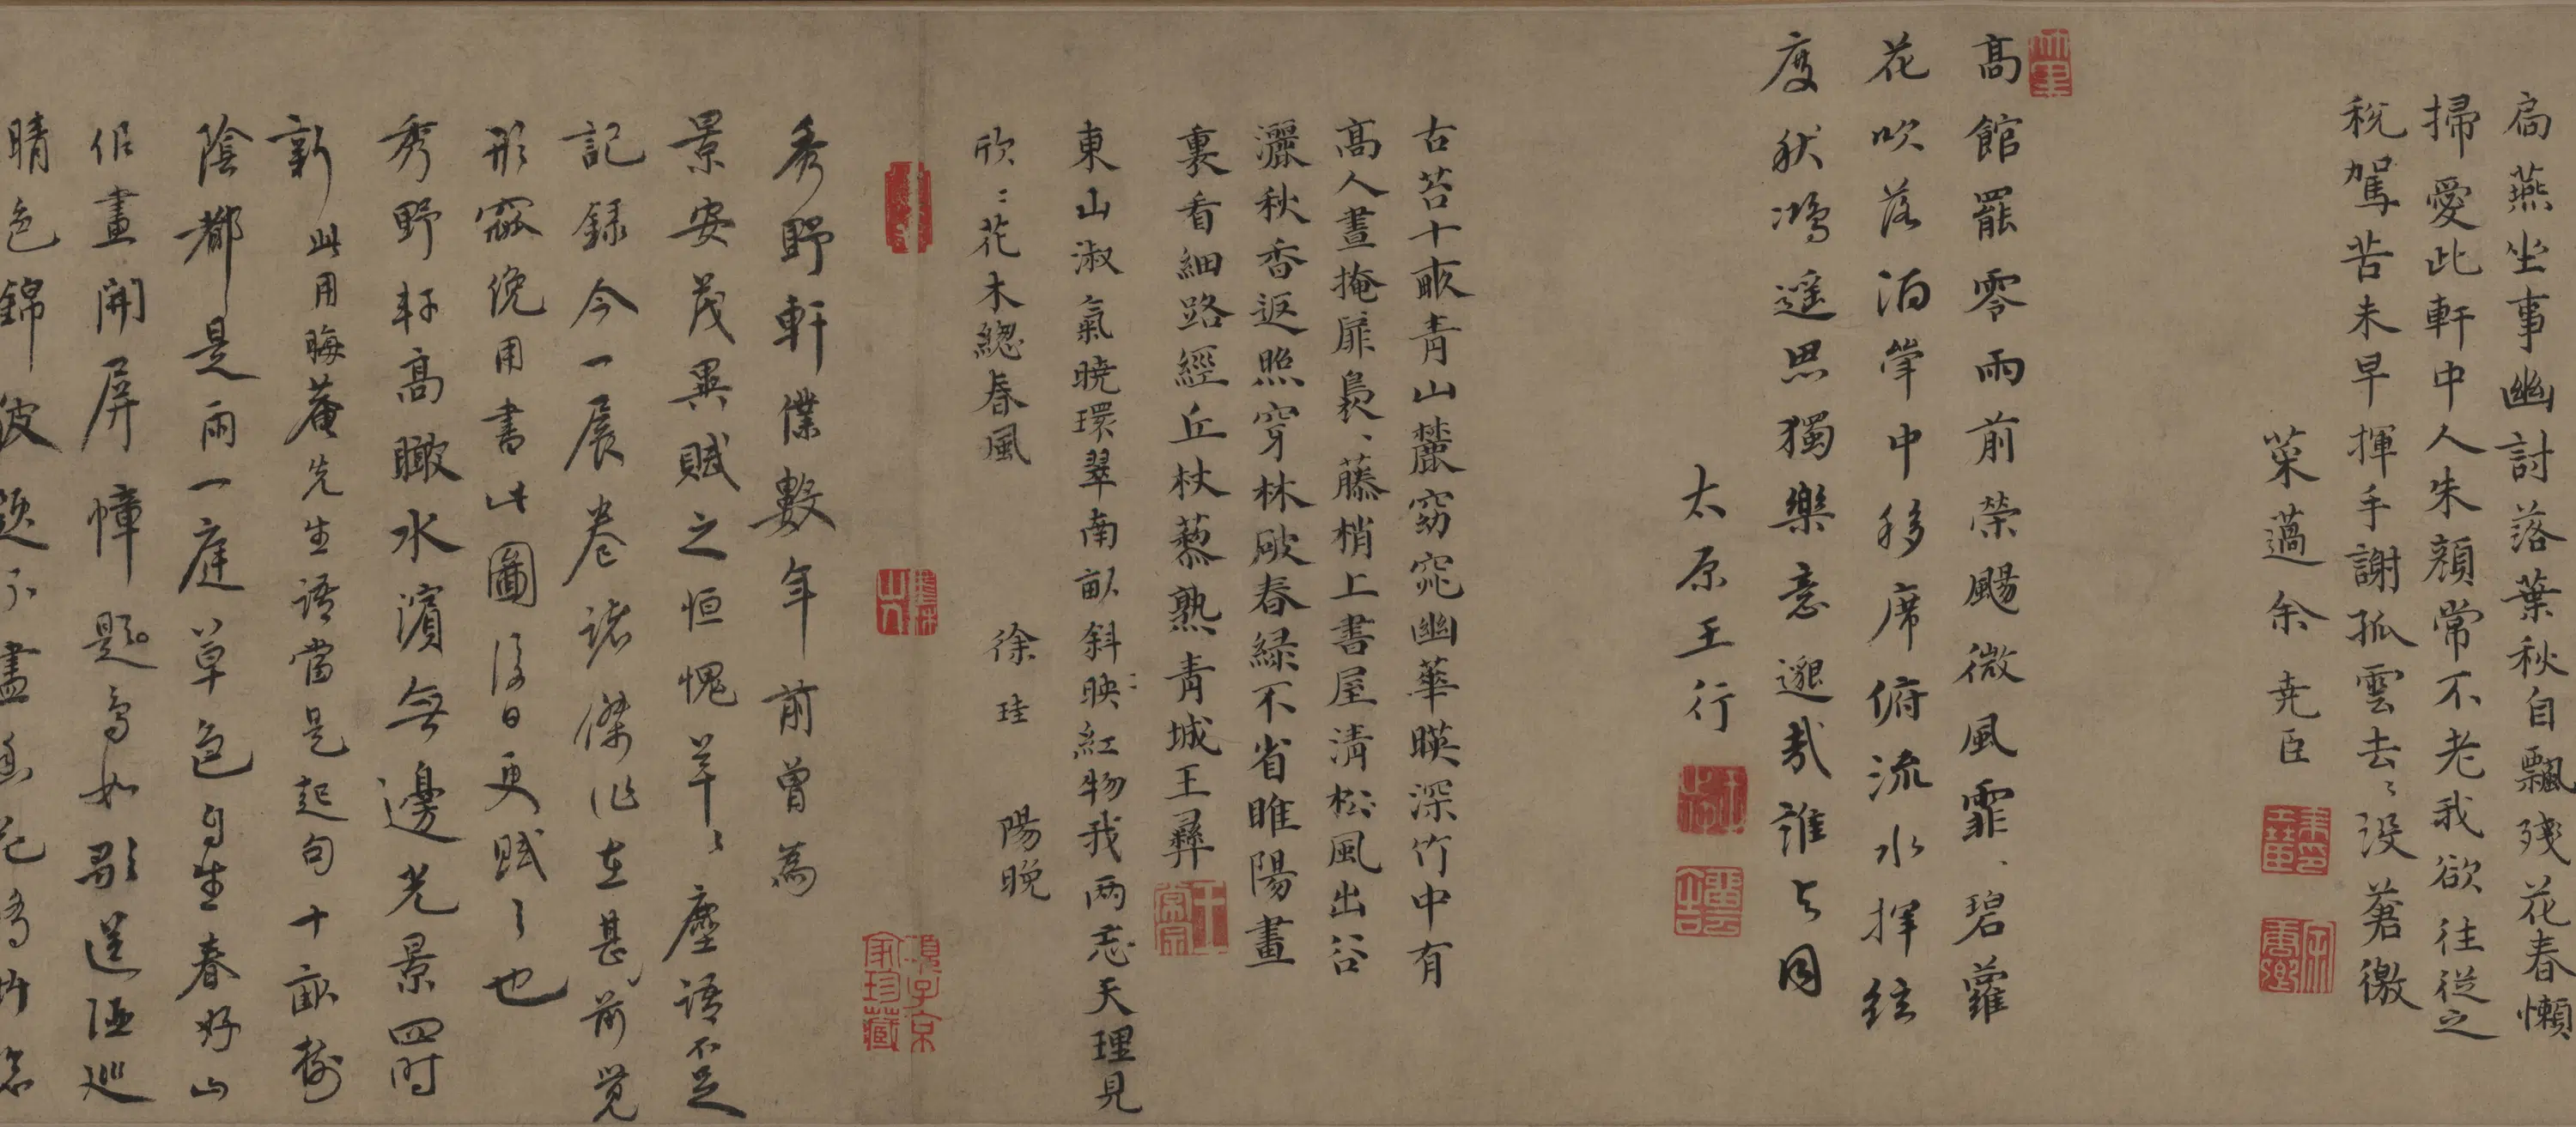 扃燕坐事幽討落葉秋自飄殘花春懶
掃愛此軒中人朱顏常不老我欲往從之
稅駕苦未早揮手謝孤雲去〻沒蒼徼
菜薖余堯臣
高館罷零雨前榮颺微風霏〻碧蘿
花吹落酒斚中移席俯流水揮絃
度秋鴻遥思獨樂意邈哉誰与同
太原王行
古苔十畝青山麓窈窕幽華暎深竹中有
高人晝掩扉裊〻藤梢上書屋清松風出谷
灑秋香返照穿林破春緑不省睢陽畫
裏看細路經丘杖藜熟青城王彞
東山淑氣曉環翠南畝斜〻映紅物我两忘天理見
欣〻花木總春風
徐珪
陽晚
秀野軒僕數年前曾為
景安茂異賦之恒愧草〻塵語不足
記録今一展卷諸傑作在甚前覺
形穢俛用書此圖後日更賦之也
秀野軒高瞰水濱無邊光景四時
新此用晦菴先生語當是起句十畝樹
陰都是雨一庭草色自生春好山
佀畫開屏幛題鳥如歌送酒巡
晴色錦波题不盡
項子京家珍藏